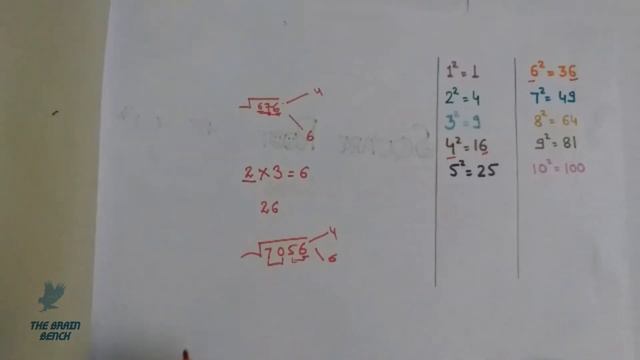 √676 4
6
2 × 3 = 6
26
√7056 4
6
1² = 1
2² = 4
3² = 9
4² = 16
5² = 25
6² = 36
7² = 49
8² = 64
9² = 81
10² = 100
THE BRAIN
BENCH